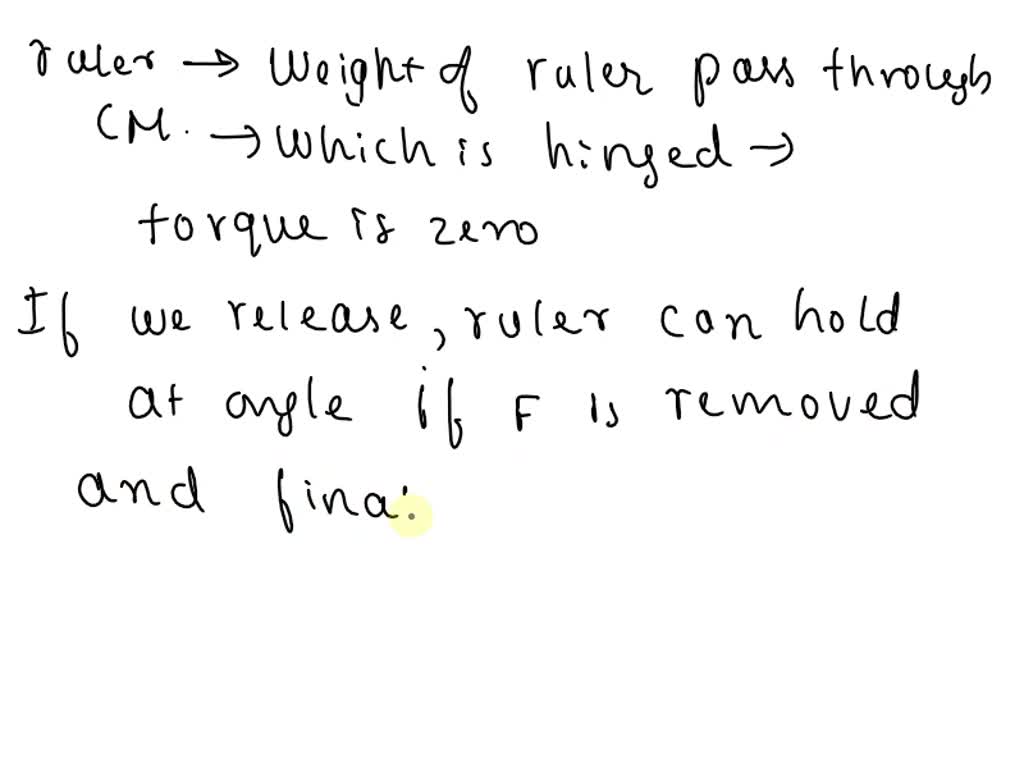 ruler → Weight of ruler pass through
CM. → Which is hinged →
torque is zero
If we release, ruler can hold
at angle if F is removed
and fina